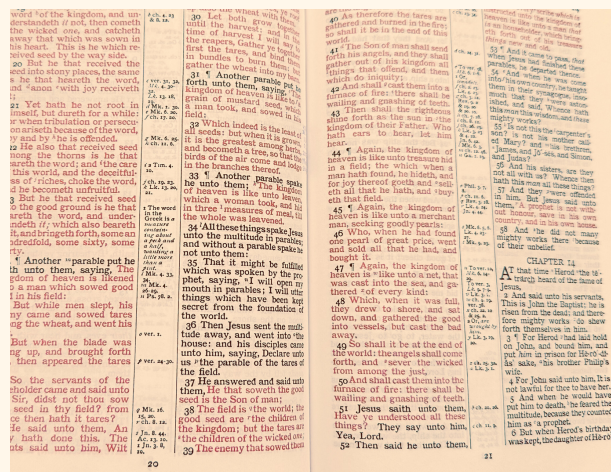 word of the kingdom, and un-
derstandeth it not, then cometh
the wicked one, and catcheth
away that which was sown in
his heart. This is he which re-
ceived seed by the way side.
20 But he that received the
seed into stony places, the same
is he that heareth the word,
and anon with joy receiveth
21 Yet hath he not root in
himself, but dureth for a while:
for when tribulation or persecu-
tion ariseth because of the word,
by and by he is offended.
22 He also that received seed
among the thorns is he that
heareth the word; and the care
of this world, and the deceitful-
ness of riches, choke the word,
and he becometh unfruitful.
But he that received seed
into the good ground is he that
heareth the word, and under-
standeth it; which also beareth
fruit, and bringeth forth, some an
hundredfold, some sixty, some
thirty.
¶ Another parable put he
forth unto them, saying, The
kingdom of heaven is likened
unto a man which sowed good
seed in his field:
But while men slept, his
enemy came and sowed tares
among the wheat, and went his
But when the blade was
sprung up, and brought forth
then appeared the tares
So the servants of the
householder came and said unto
Sir, didst not thou sow
seed in thy field? from
whence then hath it tares?
He said unto them, An
enemy hath done this. The
servants said unto him, Wilt
20
the wheat with them.
30 Let both grow together
until the harvest: and in the
time of harvest I will say to
the reapers, Gather ye together
first the tares, and bind them
in bundles to burn them: but
gather the wheat into my barn.
31 ¶ Another parable put he
forth unto them, saying, The
kingdom of heaven is like to a
grain of mustard seed, which
a man took, and sowed in his
field:
32 Which indeed is the least of
all seeds: but when it is grown,
it is the greatest among herbs,
and becometh a tree, so that the
birds of the air come and lodge
in the branches thereof.
33 ¶ Another parable spake
he unto them; The kingdom
of heaven is like unto leaven,
which a woman took, and hid
in three measures of meal, till
the whole was leavened.
34 All these things spake Jesus
unto the multitude in parables;
and without a parable spake he
not unto them:
35 That it might be fulfilled
which was spoken by the pro-
phet, saying, I will open my
mouth in parables; I will utter
things which have been kept
secret from the foundation of
the world.
36 Then Jesus sent the multi-
tude away, and went into the
house: and his disciples came
unto him, saying, Declare unto
us the parable of the tares of
the field.
37 He answered and said unto
them, He that soweth the good
seed is the Son of man;
38 The field is the world; the
good seed are the children of
the kingdom; but the tares are
the children of the wicked one;
39 The enemy that sowed them
40 As therefore the tares are
gathered and burned in the fire;
so shall it be in the end of this
world.
41 The Son of man shall send
forth his angels, and they shall
gather out of his kingdom all
things that offend, and them
which do iniquity;
42 And shall cast them into a
furnace of fire: there shall be
wailing and gnashing of teeth.
43 Then shall the righteous
shine forth as the sun in the
kingdom of their Father. Who
hath ears to hear, let him
hear.
44 ¶ Again, the kingdom of
heaven is like unto treasure hid
in a field; the which when a
man hath found, he hideth, and
for joy thereof goeth and sell-
eth all that he hath, and buy-
eth that field.
45 ¶ Again, the kingdom of
heaven is like unto a merchant
man, seeking goodly pearls:
46 Who, when he had found
one pearl of great price, went
and sold all that he had, and
bought it.
47 ¶ Again, the kingdom of
heaven is like unto a net, that
was cast into the sea, and ga-
thered of every kind:
48 Which, when it was full,
they drew to shore, and sat
down, and gathered the good
into vessels, but cast the bad
away.
49 So shall it be at the end of
the world: the angels shall come
forth, and sever the wicked
from among the just,
50 And shall cast them into the
furnace of fire: there shall be
wailing and gnashing of teeth.
51 Jesus saith unto them,
Have ye understood all these
things? They say unto him,
Yea, Lord.
52 Then said he unto them,
21
53 ¶ And it came to pass, that
when Jesus had finished these
parables, he departed thence.
54 And when he was come
into his own country, he taught
them in their synagogue, inso-
much that they were aston-
ished, and said, Whence hath
this man this wisdom, and these
mighty works?
55 Is not this the carpenter's
son? is not his mother call-
ed Mary? and his brethren,
James, and Joses, and Simon,
and Judas?
56 And his sisters, are they
not all with us? Whence then
hath this man all these things?
57 And they were offended
in him. But Jesus said unto
them, A prophet is not with-
out honour, save in his own
country, and in his own house.
58 And he did not many
mighty works there because
of their unbelief.
CHAPTER 14
At that time Herod the te-
trarch heard of the fame of
Jesus,
2 And said unto his servants,
This is John the Baptist; he is
risen from the dead; and there-
fore mighty works do shew
forth themselves in him.
3 ¶ For Herod had laid hold
on John, and bound him, and
put him in prison for Hĕ-rō'-dĭ-
ăs' sake, his brother Philip's
wife.
4 For John said unto him, It is
not lawful for thee to have her.
5 And when he would have
put him to death, he feared the
multitude, because they counted
him as a prophet.
6 But when Herod's birthday
was kept, the daughter of Hĕ-rō'-